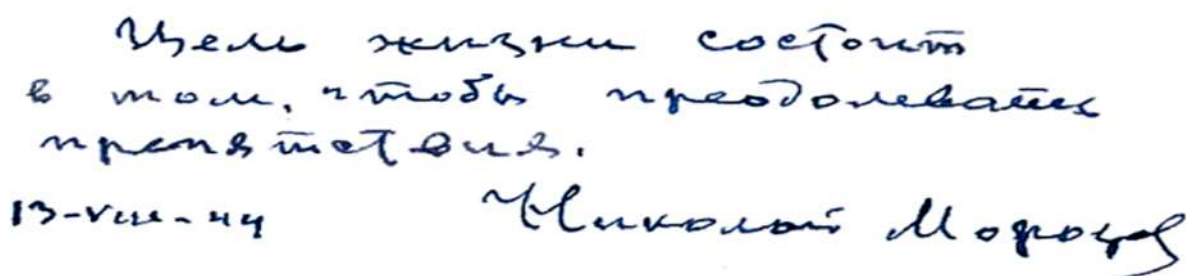 Цель жизни состоит
в том, чтобы преодолевать
препятствия.
13-VIII-44 Николай Морозов